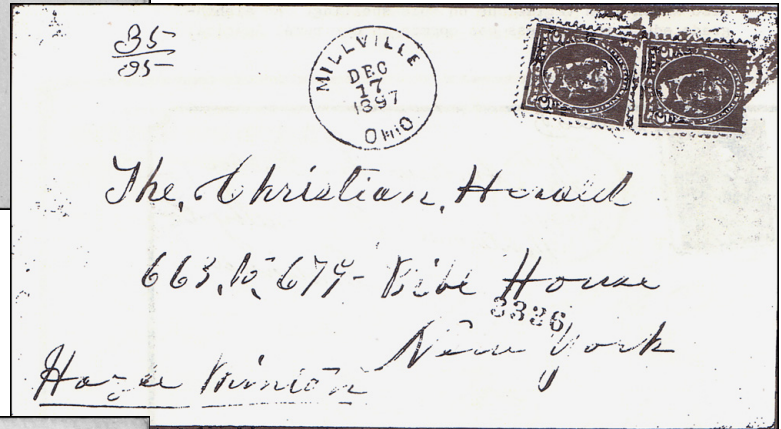 35
95
MILLVILLE
DEC
17
1897
OHIO
The, Christian, Herald
663, to, 679 - Bible House
3336
New York